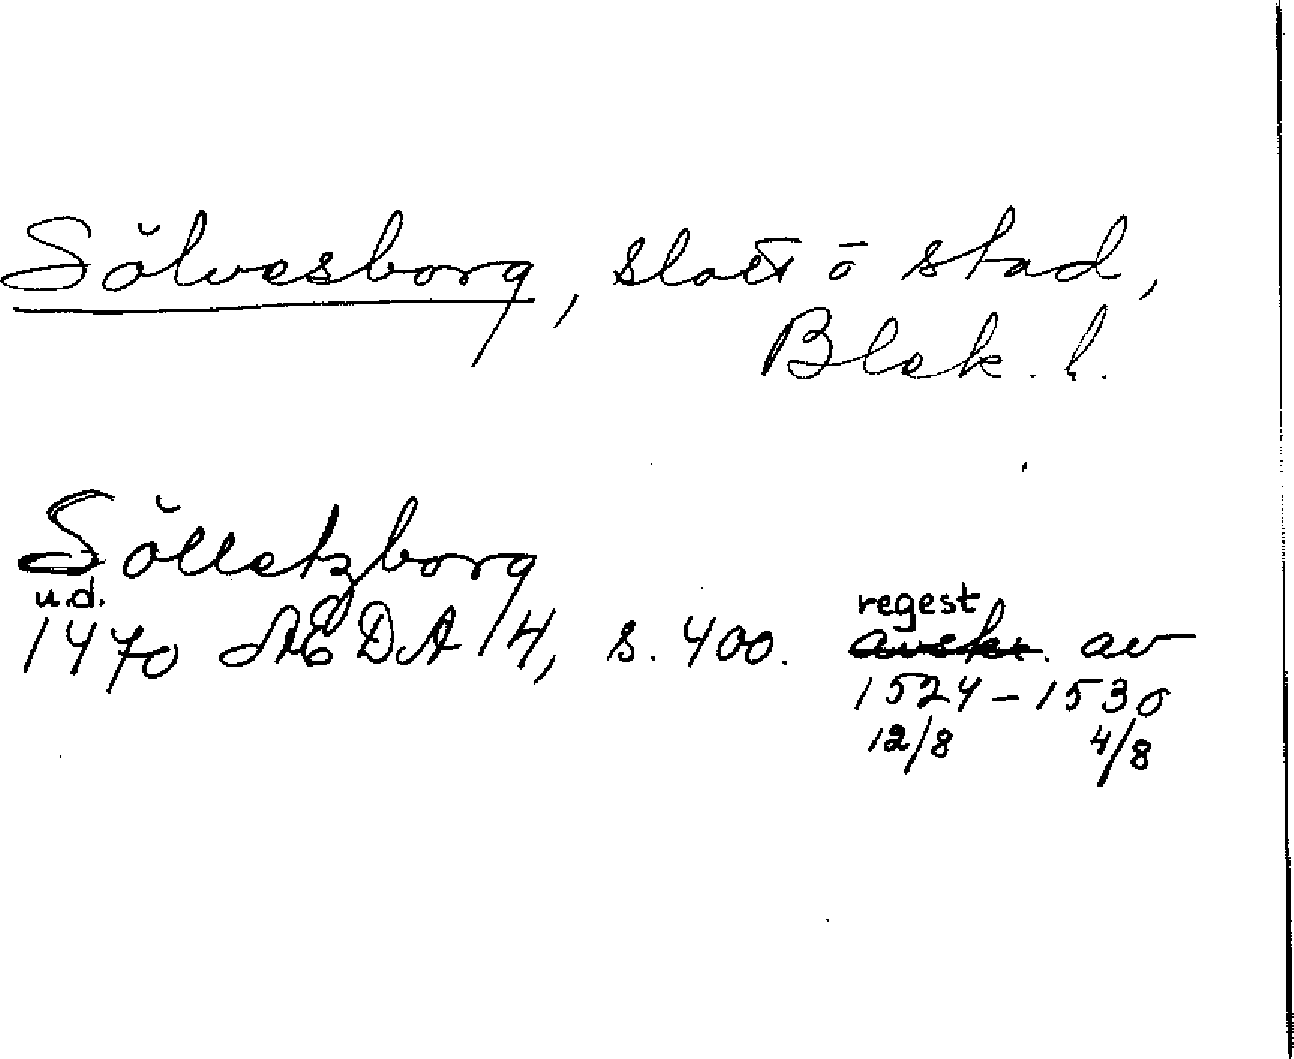 Sölvesborg, slott o stad,
Blek. l.
Sölletzborg
u.d. regest
1470 ÆDA 4, s. 400. avskr. av
1524 – 1530
12/8 4/8